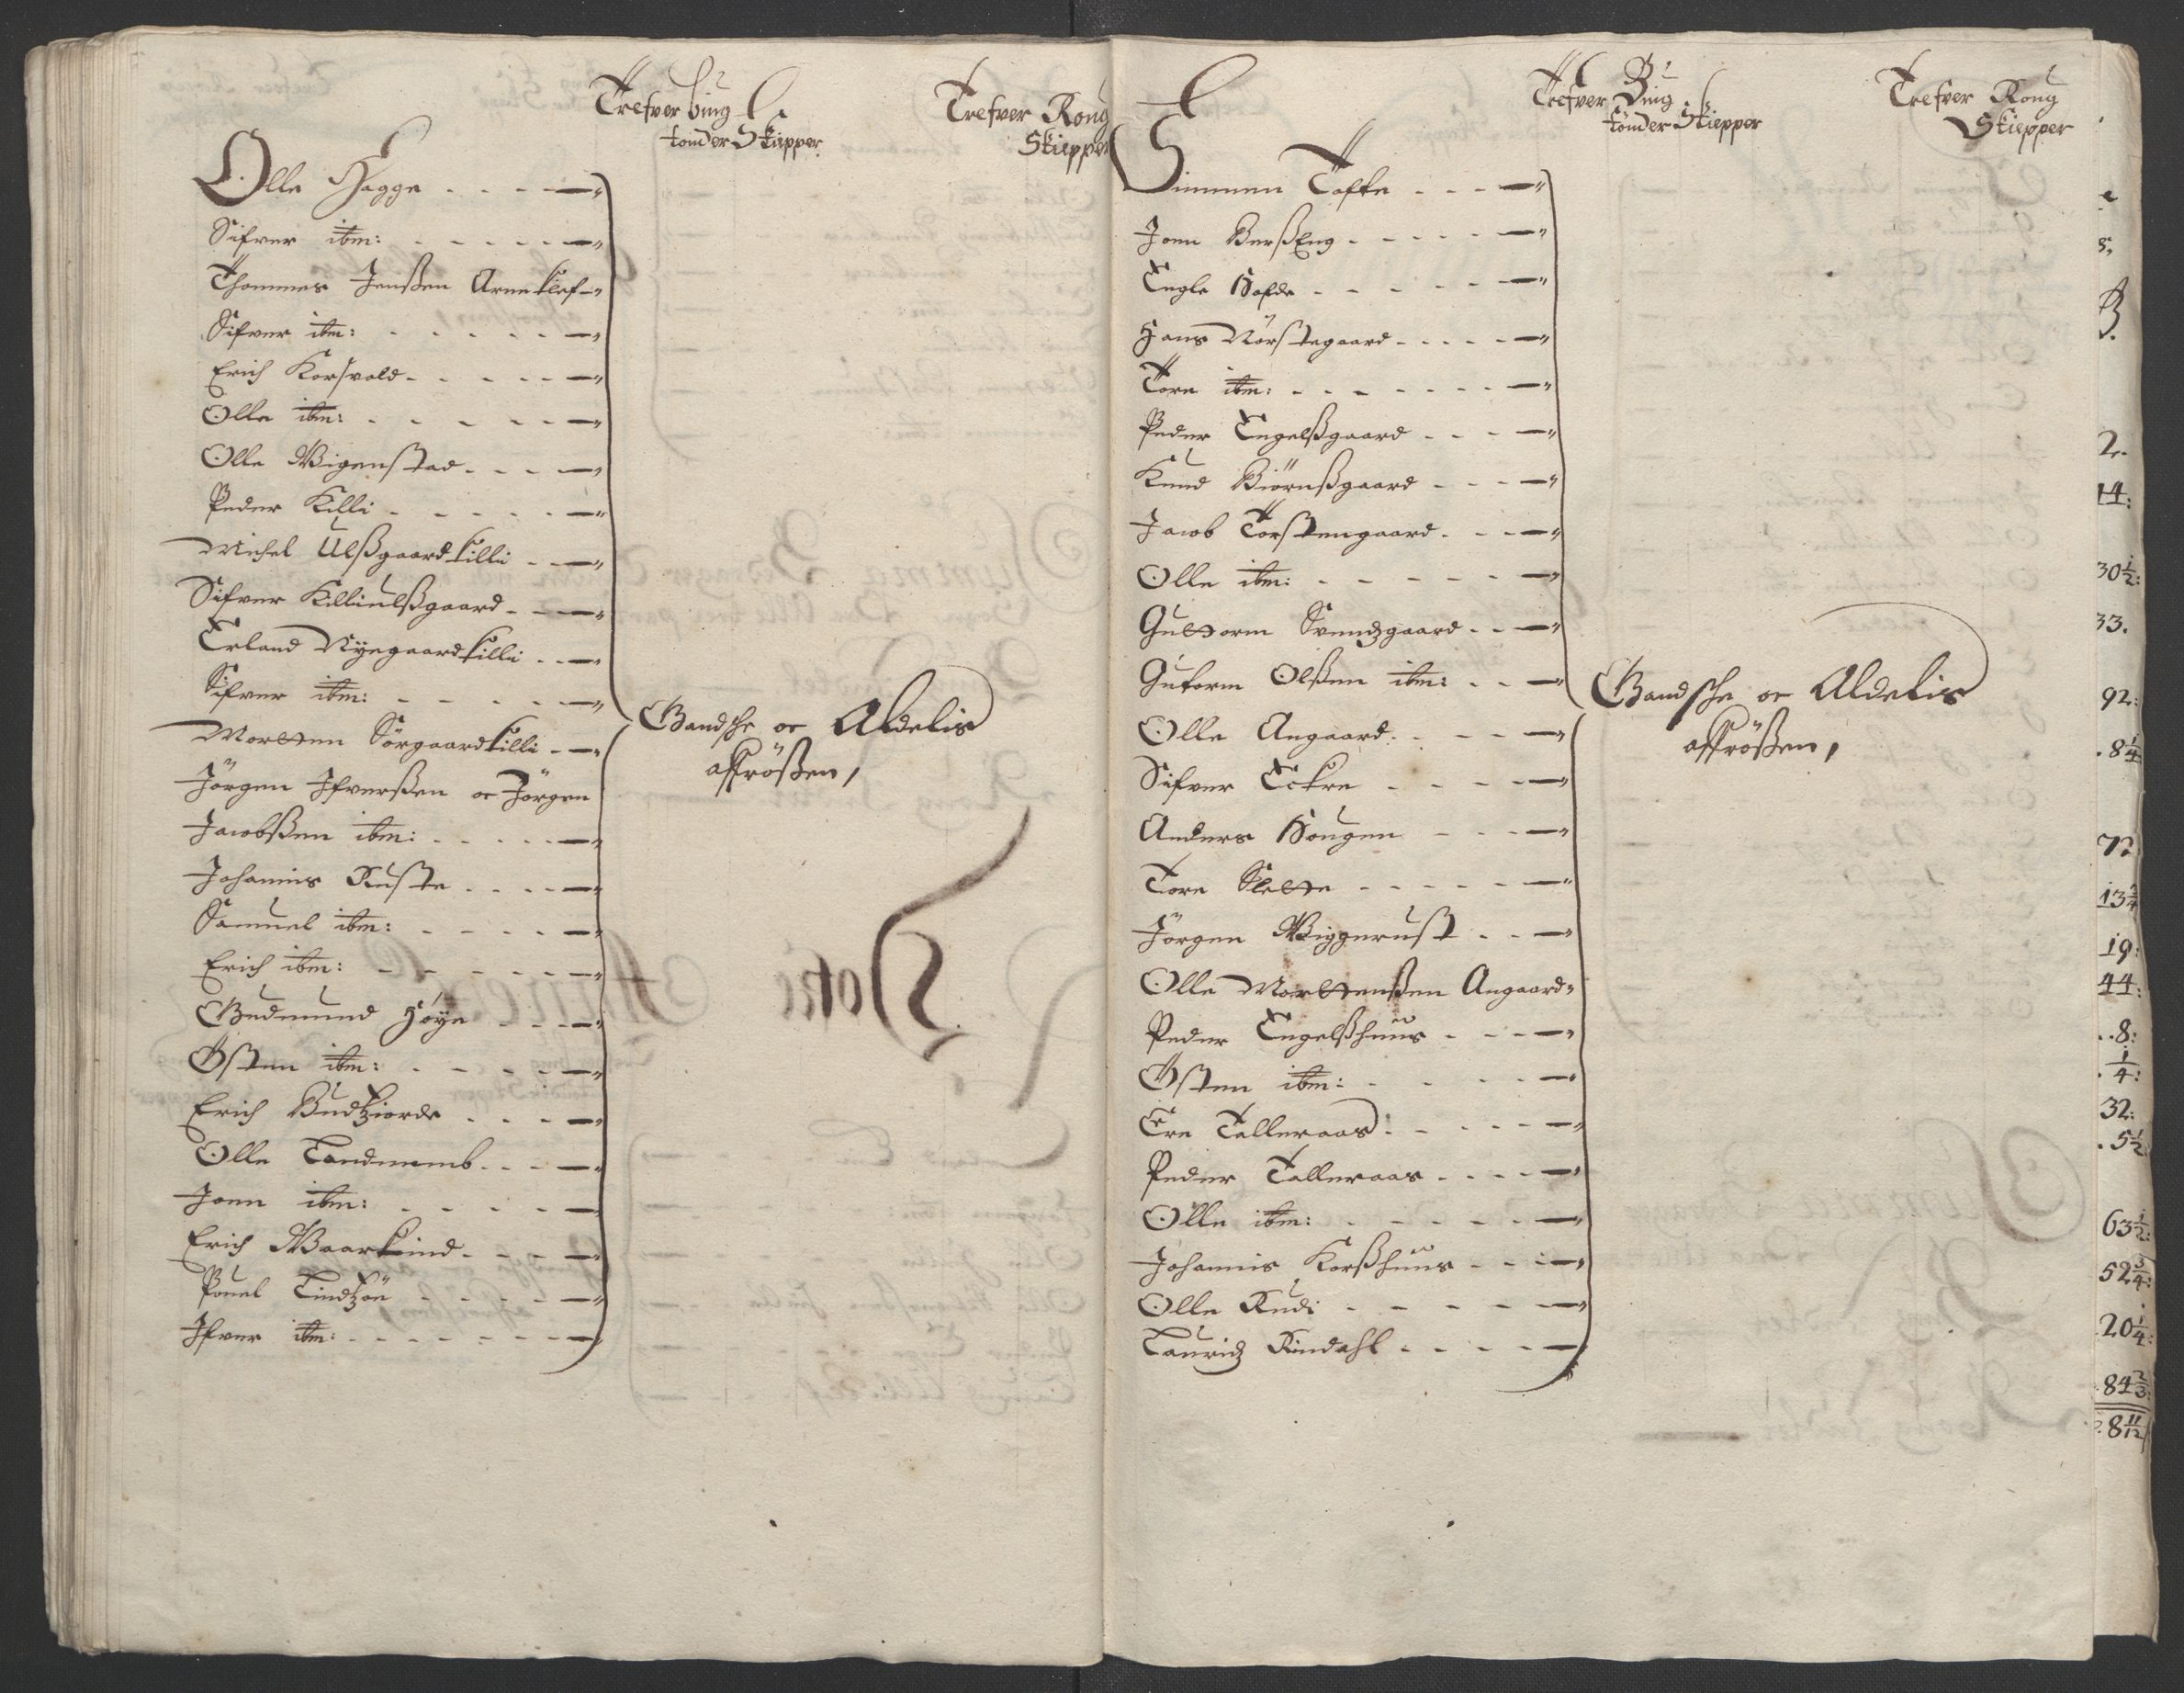 Trefver bing
tønder Skiepper
Trefver Rong
Skiepper
Olle Hagge
Sifver ibm:
Thommes Jenßen Arneklef
Sifver ibm:
Erich Korsvold
Olle ibm:
Olle Wigenstad
Peder Killi
Michel Ulßgaardkilli
Sifver Killiulßgaard
Erland Nyegaardkilli
Sifver ibm:
Mortten Sørgaardkilli
Jørgen Ifverßen oc Jørgen
Jacobßen ibm:
Johannis Ruste
Samuel ibm:
Erich ibm:
Gudmund Høye
Østen ibm:
Erich Budtziorde
Olle Landnemb
Joen ibm:
Erich Waarkind
Pouel Lindtzøe
Ifver ibm:
Gandsche oc Aldelis
affrößen,
Trefver Bing
tønder Skiepper
Trefver Rong
Skiepper
Simmen Tofte
Joen BerßEng
Engle Hofde
Hans Nörstegaard
Tore ibm:
Peder Engelßgaard
Knud Biørnßgaard
Jacob Torstengaard
Olle ibm:
Guttorm Svendzgaard
Gutorm Olßen ibm:
Olle Angaard
Sifver Eckre
Anders Hougen
Tore Slette
Jørgen Wiggerust
Olle Mortenßen Angaard
Peder Engelßhuus
Østen ibm:
Ere Talleraas
Peder Talleraas
Olle ibm:
Johannis Korßhuus
Olle Rudi
Lauridz Rindahl
Gandsche oc Aldelis
affrößen,
2.
14:
30 1/2:
33.
92:
8 1/4
72
13 3/4
19:
44:
8:
1/4:
32:
5 1/2
63 1/2:
52 3/4:
20 1/4:
84 2/3:
8 11/12